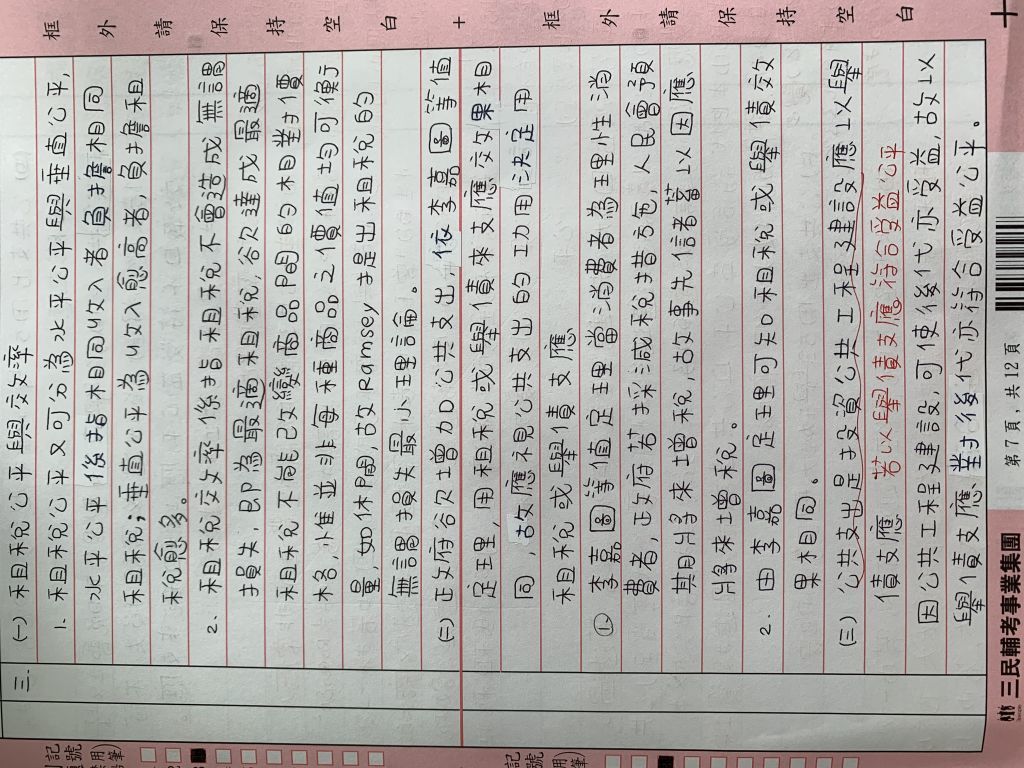 框外請保持空白
三、
(一) 租稅公平與效率
1. 租稅公平又可分為水平公平與垂直公平,
水平公平係指相同收入者負擔相同
租稅;垂直公平為收入愈高者,負擔租
稅愈多。
2. 租稅效率係指租稅不會造成無謂
損失,即為最適租稅,欲達成最適
租稅不能改變商品間的相對價
格,惟並非每種商品之價值均可衡
量,如休閒,故Ramsey提出租稅的
無謂損失最小理論。
(二) 政府欲增加公共支出,依李嘉圖等值
定理,用租稅或舉債來支應效果相
同,故應視公共支出的功用決定用
租稅或舉債支應
1. 李嘉圖等值定理當消費者為理性消
費者,政府若採減稅措施,人民會預
期將來增稅,故事先儲蓄以因應
將來增稅。
2. 由李嘉圖定理可知租稅或舉債效
果相同。
(三) 公共支出是投資公共工程建設應以舉
債支應 若以舉債支應符合受益公平
因公共工程建設,可使後代亦受益,故以
舉債支應對後代亦符合受益公平。
框外請保持空白
第7頁,共12頁
三民輔考事業集團